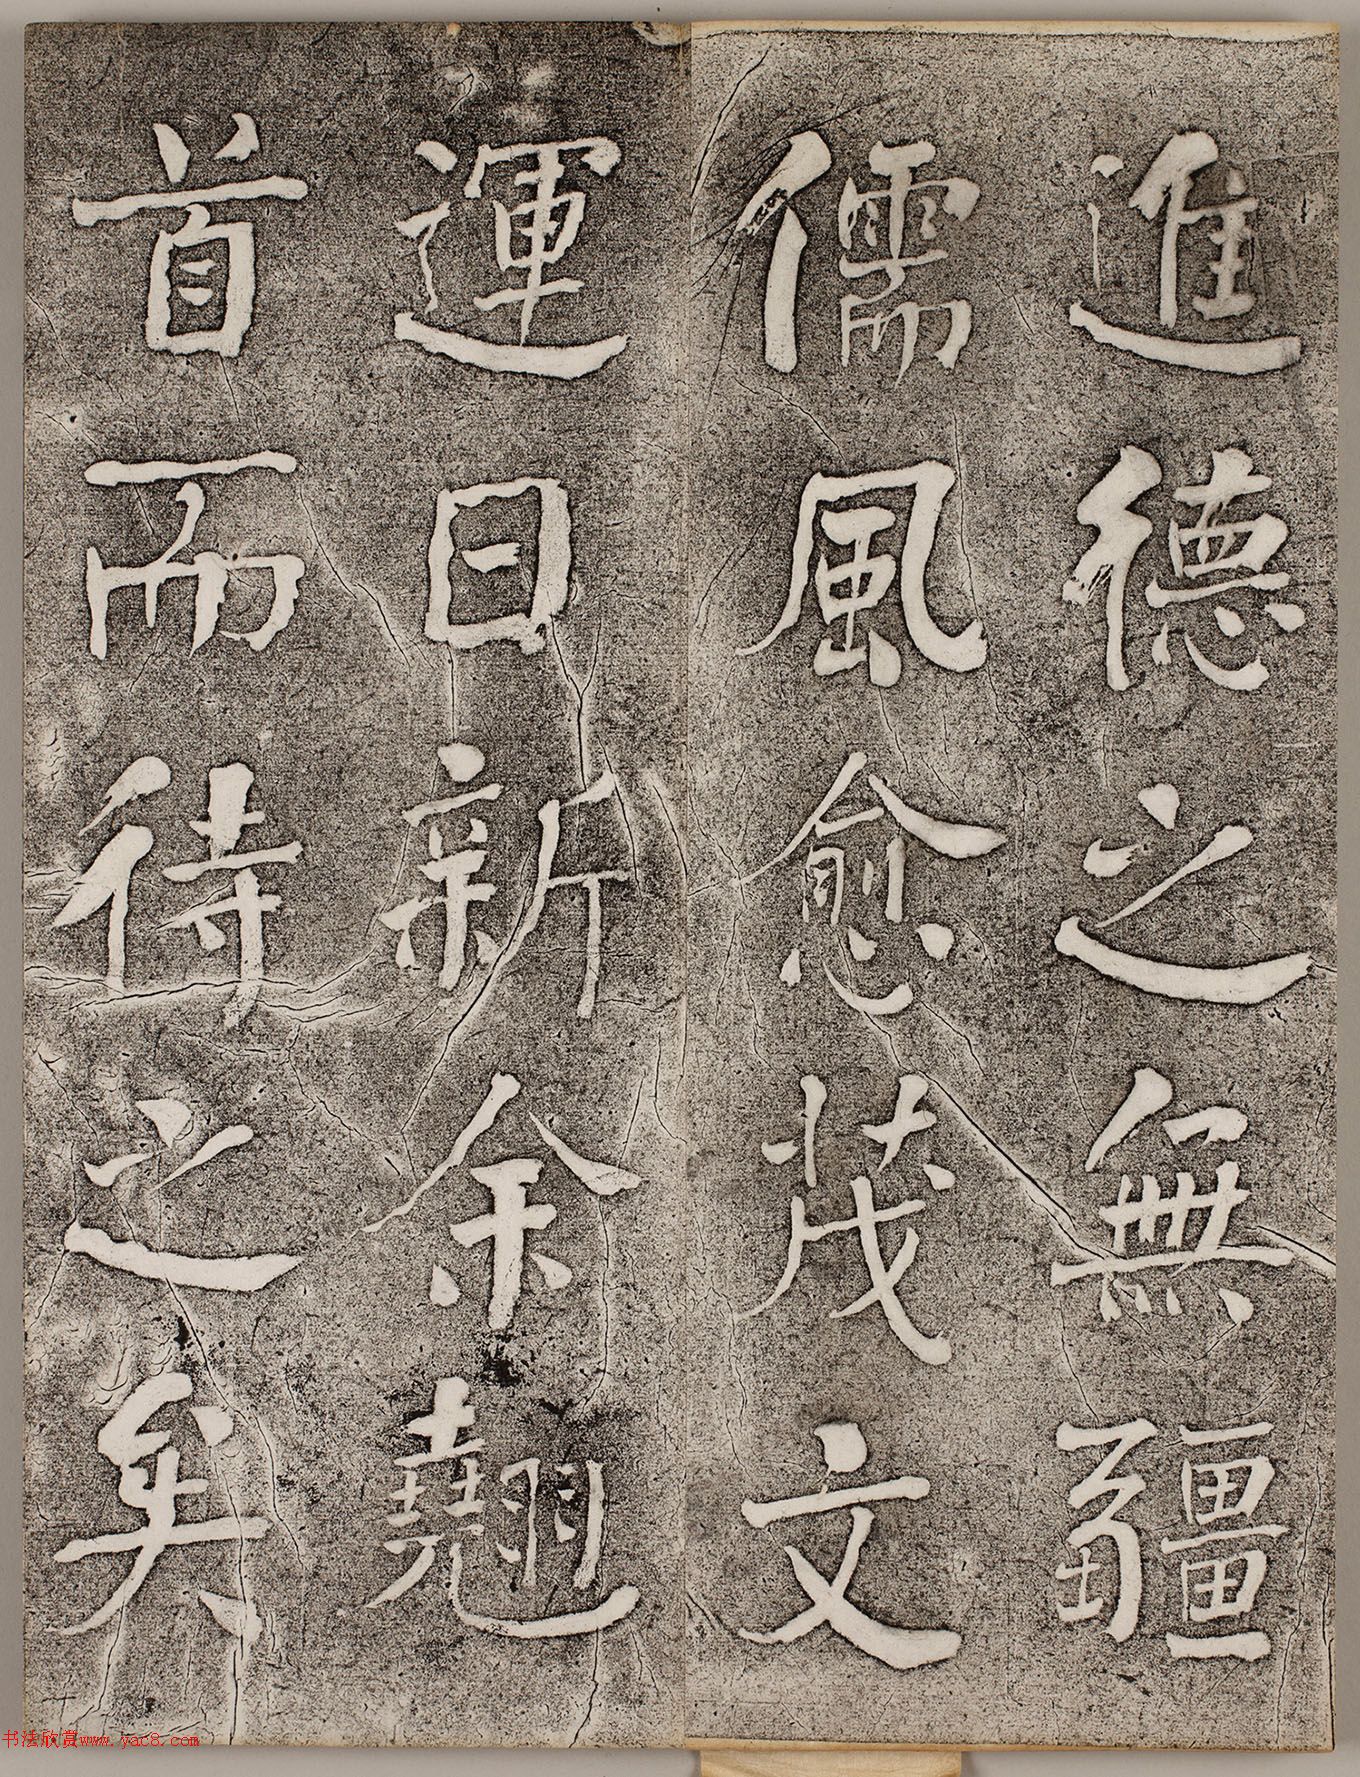 進德之無疆
儒風愈茂文
運日新余翹
首而待之矣
书法欣赏www.yac8.com